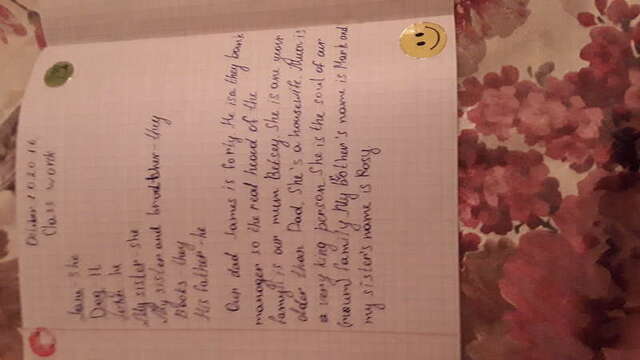 October 10 2016
Class work
Jane - she
Dog - It
John he
My sister - she
My sister and brother - they
Books - they
His father - he
Our dad James is forty. He is a they bank
manager so the real heoud of the
famyli is our mum Betsey. She is one year
older than Dad. She's a housewife. Mum is
a very king person. She is the soul of our
(mum) family. My Bother's name is Mark and
my sister's name is Rosy.